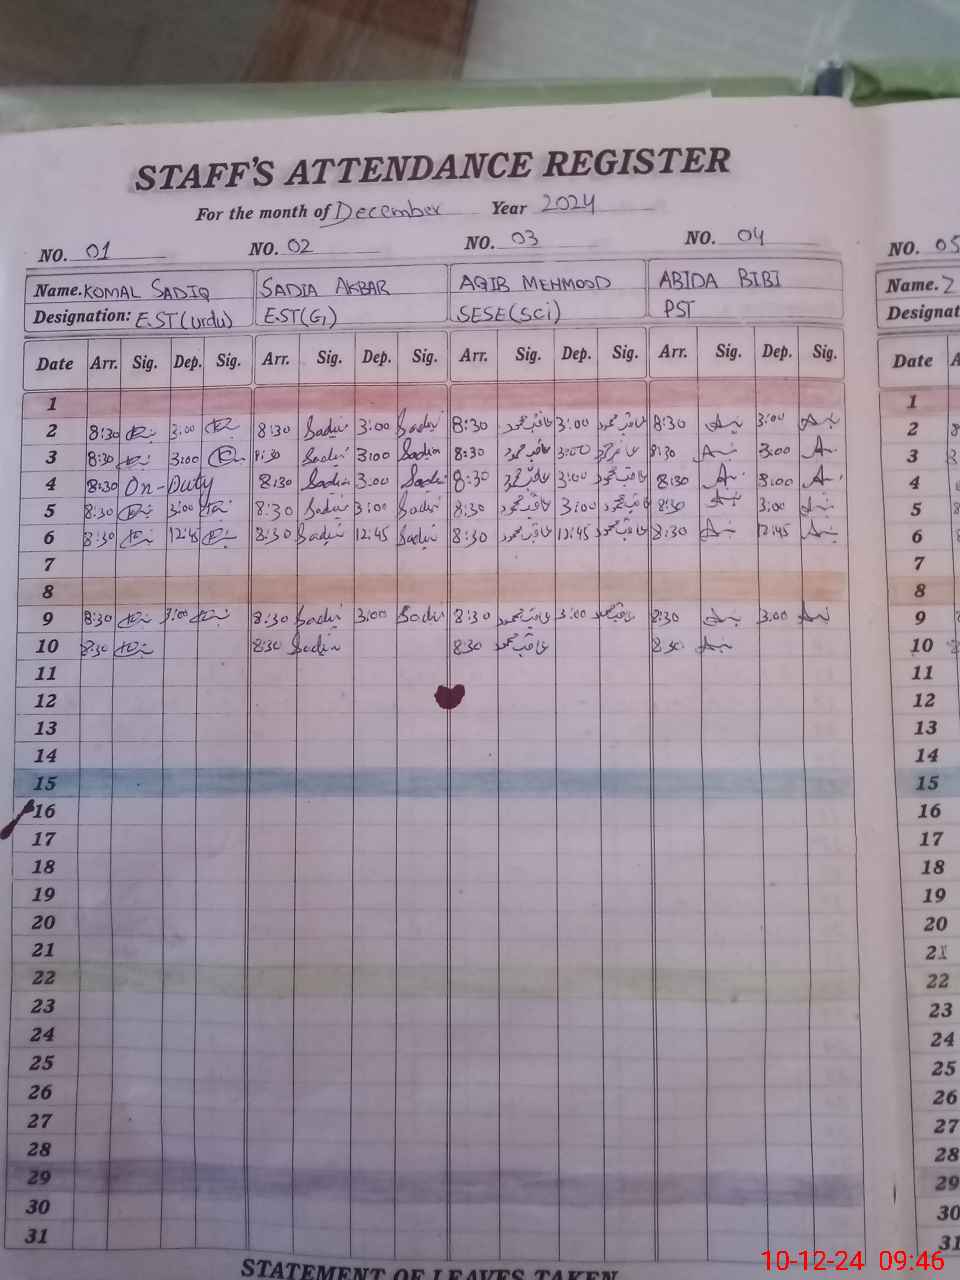 STAFF'S ATTENDANCE REGISTER
For the month of December Year 2024
NO. 01 NO. 02 NO. 03 NO. 04 NO. 05
Name. KOMAL SADIQ SADIA AKBAR AQIB MEHMOOD ABIDA BIBI Name. Z
Designation: E.ST(urdu) E.ST(G) SESE(SCi) PST Designat
Date Arr. Sig. Dep. Sig. Arr. Sig. Dep. Sig. Arr. Sig. Dep. Sig. Arr. Sig. Dep. Sig. Date A
1 1
2 8:30 3:00 8:30 Sadia 3:00 Sadia 8:30 عاقب محمود 3:00 عاقب محمود 8:30 3:00 2 8
3 8:30 3:00 8:30 Sadia 3:00 Sadia 8:30 عاقب محمود 3:00 عاقب محمود 8:30 3:00 3
4 8:30 On-Duty 8:30 Sadia 3:00 Sadia 8:30 عاقب محمود 3:00 عاقب محمود 8:30 3:00 4
5 8:30 3:00 8:30 Sadia 3:00 Sadia 8:30 عاقب محمود 3:00 عاقب محمود 8:30 3:00 5
6 8:30 12:45 8:30 Sadia 12:45 Sadia 8:30 عاقب محمود 12:45 عاقب محمود 8:30 12:45 6
7 7
8 8
9 8:30 3:00 8:30 Sadia 3:00 Sadia 8:30 عاقب محمود 3:00 عاقب محمود 8:30 3:00 9
10 8:30 8:30 Sadia 8:30 عاقب محمود 8:30 10
11 11
12 12
13 13
14 14
15 15
16 16
17 17
18 18
19 19
20 20
21 21
22 22
23 23
24 24
25 25
26 26
27 27
28 28
29 29
30 30
31 31
STATEMENT OF LEAVES TAKEN
10-12-24 09:46